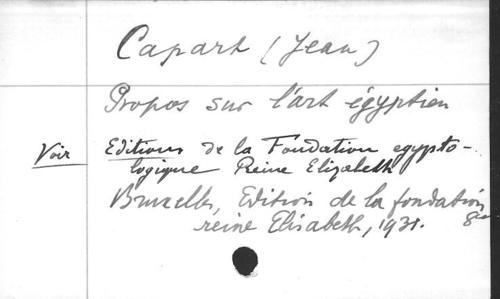 Capart (Jean)
Propos sur l'art égyptien
Voir Editions de la Fondation egypto-
logique Reine Elizabeth
Bruxelles, Edition de la fondation
reine Elisabeth, 1931. 8º